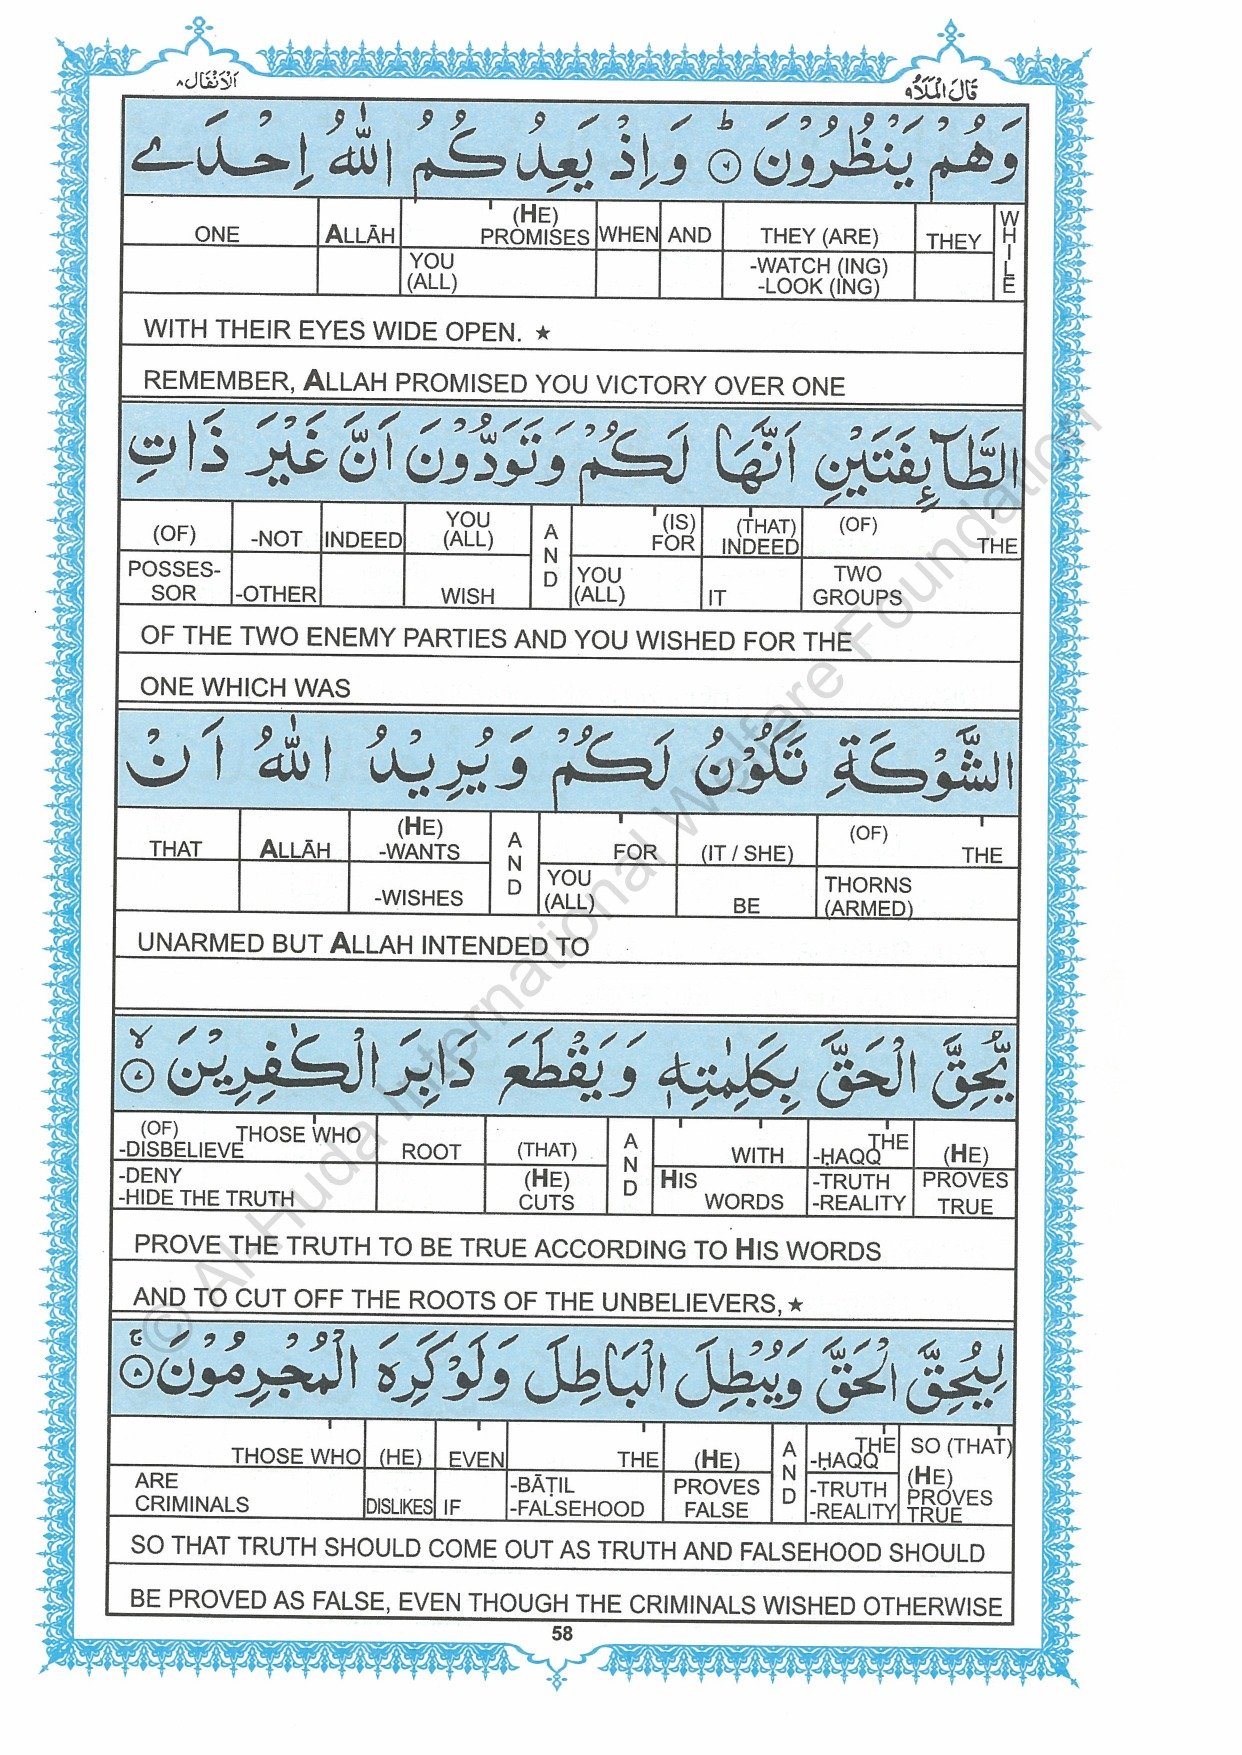 الانفال ۸ قال الملا ۹
وَهُمْ يَنْظُرُوْنَ ؕ ۶ وَاِذْ يَعِدُكُمُ اللّٰهُ اِحْدَے
ONE ALLĀH (HE) PROMISES WHEN AND THEY (ARE) THEY WHILE
YOU (ALL) -WATCH (ING) -LOOK (ING)
WITH THEIR EYES WIDE OPEN. ★
REMEMBER, ALLAH PROMISED YOU VICTORY OVER ONE
الطَّآئِفَتَيْنِ اَنَّهَا لَكُمْ وَتَوَدُّوْنَ اَنَّ غَيْرَ ذَاتِ
(OF) -NOT INDEED YOU (ALL) AND (IS) FOR (THAT) INDEED (OF) THE
POSSES-SOR -OTHER WISH YOU (ALL) IT TWO GROUPS
OF THE TWO ENEMY PARTIES AND YOU WISHED FOR THE
ONE WHICH WAS
الشَّوْكَةِ تَكُوْنُ لَكُمْ وَيُرِيْدُ اللّٰهُ اَنْ
THAT ALLĀH (HE) -WANTS AND FOR (IT / SHE) (OF) THE
-WISHES YOU (ALL) BE THORNS (ARMED)
UNARMED BUT ALLAH INTENDED TO
يُّحِقَّ الْحَقَّ بِكَلِمٰتِهٖ وَيَقْطَعَ دَابِرَ الْكٰفِرِيْنَ ۙ ۷
(OF) -DISBELIEVE THOSE WHO ROOT (THAT) AND WITH THE -ḤAQQ (HE)
-DENY -HIDE THE TRUTH (HE) CUTS HIS WORDS -TRUTH -REALITY PROVES TRUE
PROVE THE TRUTH TO BE TRUE ACCORDING TO HIS WORDS
AND TO CUT OFF THE ROOTS OF THE UNBELIEVERS, ★
لِيُحِقَّ الْحَقَّ وَيُبْطِلَ الْبَاطِلَ وَلَوْ كَرِهَ الْمُجْرِمُوْنَ ۚ ۸
THOSE WHO (HE) EVEN THE (HE) AND THE -ḤAQQ SO (THAT)
ARE CRIMINALS DISLIKES IF -BĀṬIL -FALSEHOOD PROVES FALSE -TRUTH -REALITY (HE) PROVES TRUE
SO THAT TRUTH SHOULD COME OUT AS TRUTH AND FALSEHOOD SHOULD
BE PROVED AS FALSE, EVEN THOUGH THE CRIMINALS WISHED OTHERWISE
58
© Al-Huda International Welfare Foundation